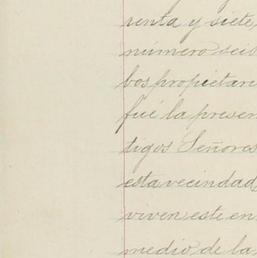 renta y siete,
número seis
bos propietari
fué la presen
tigos Señores
esta vecindad
viven este en
medio de la